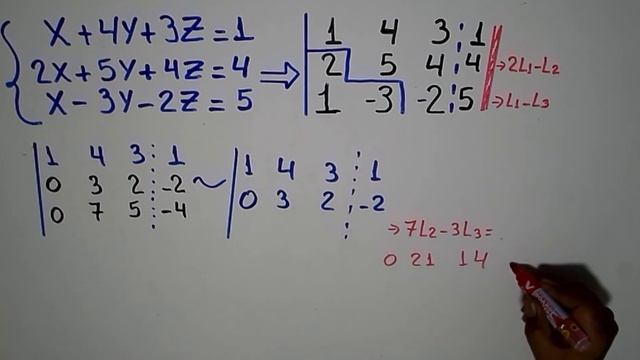 X + 4Y + 3Z = 1
2X + 5Y + 4Z = 4
X - 3Y - 2Z = 5
⇒
1 4 3 1
2 5 4 4 → 2L₁-L₂
1 -3 -2 5 → L₁-L₃
1 4 3 1
0 3 2 -2
0 7 5 -4
~
1 4 3 1
0 3 2 -2
→ 7L₂-3L₃=
0 21 14